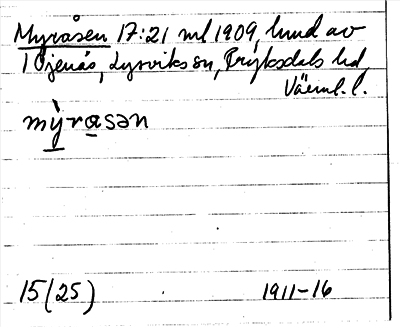 Myråsen 17:21 ml 1909, lmd av
1 Öjenäs, Lysviks sn, Fryksdals hd,
Värml. l.
my̍rasən
15(25) 1911-16